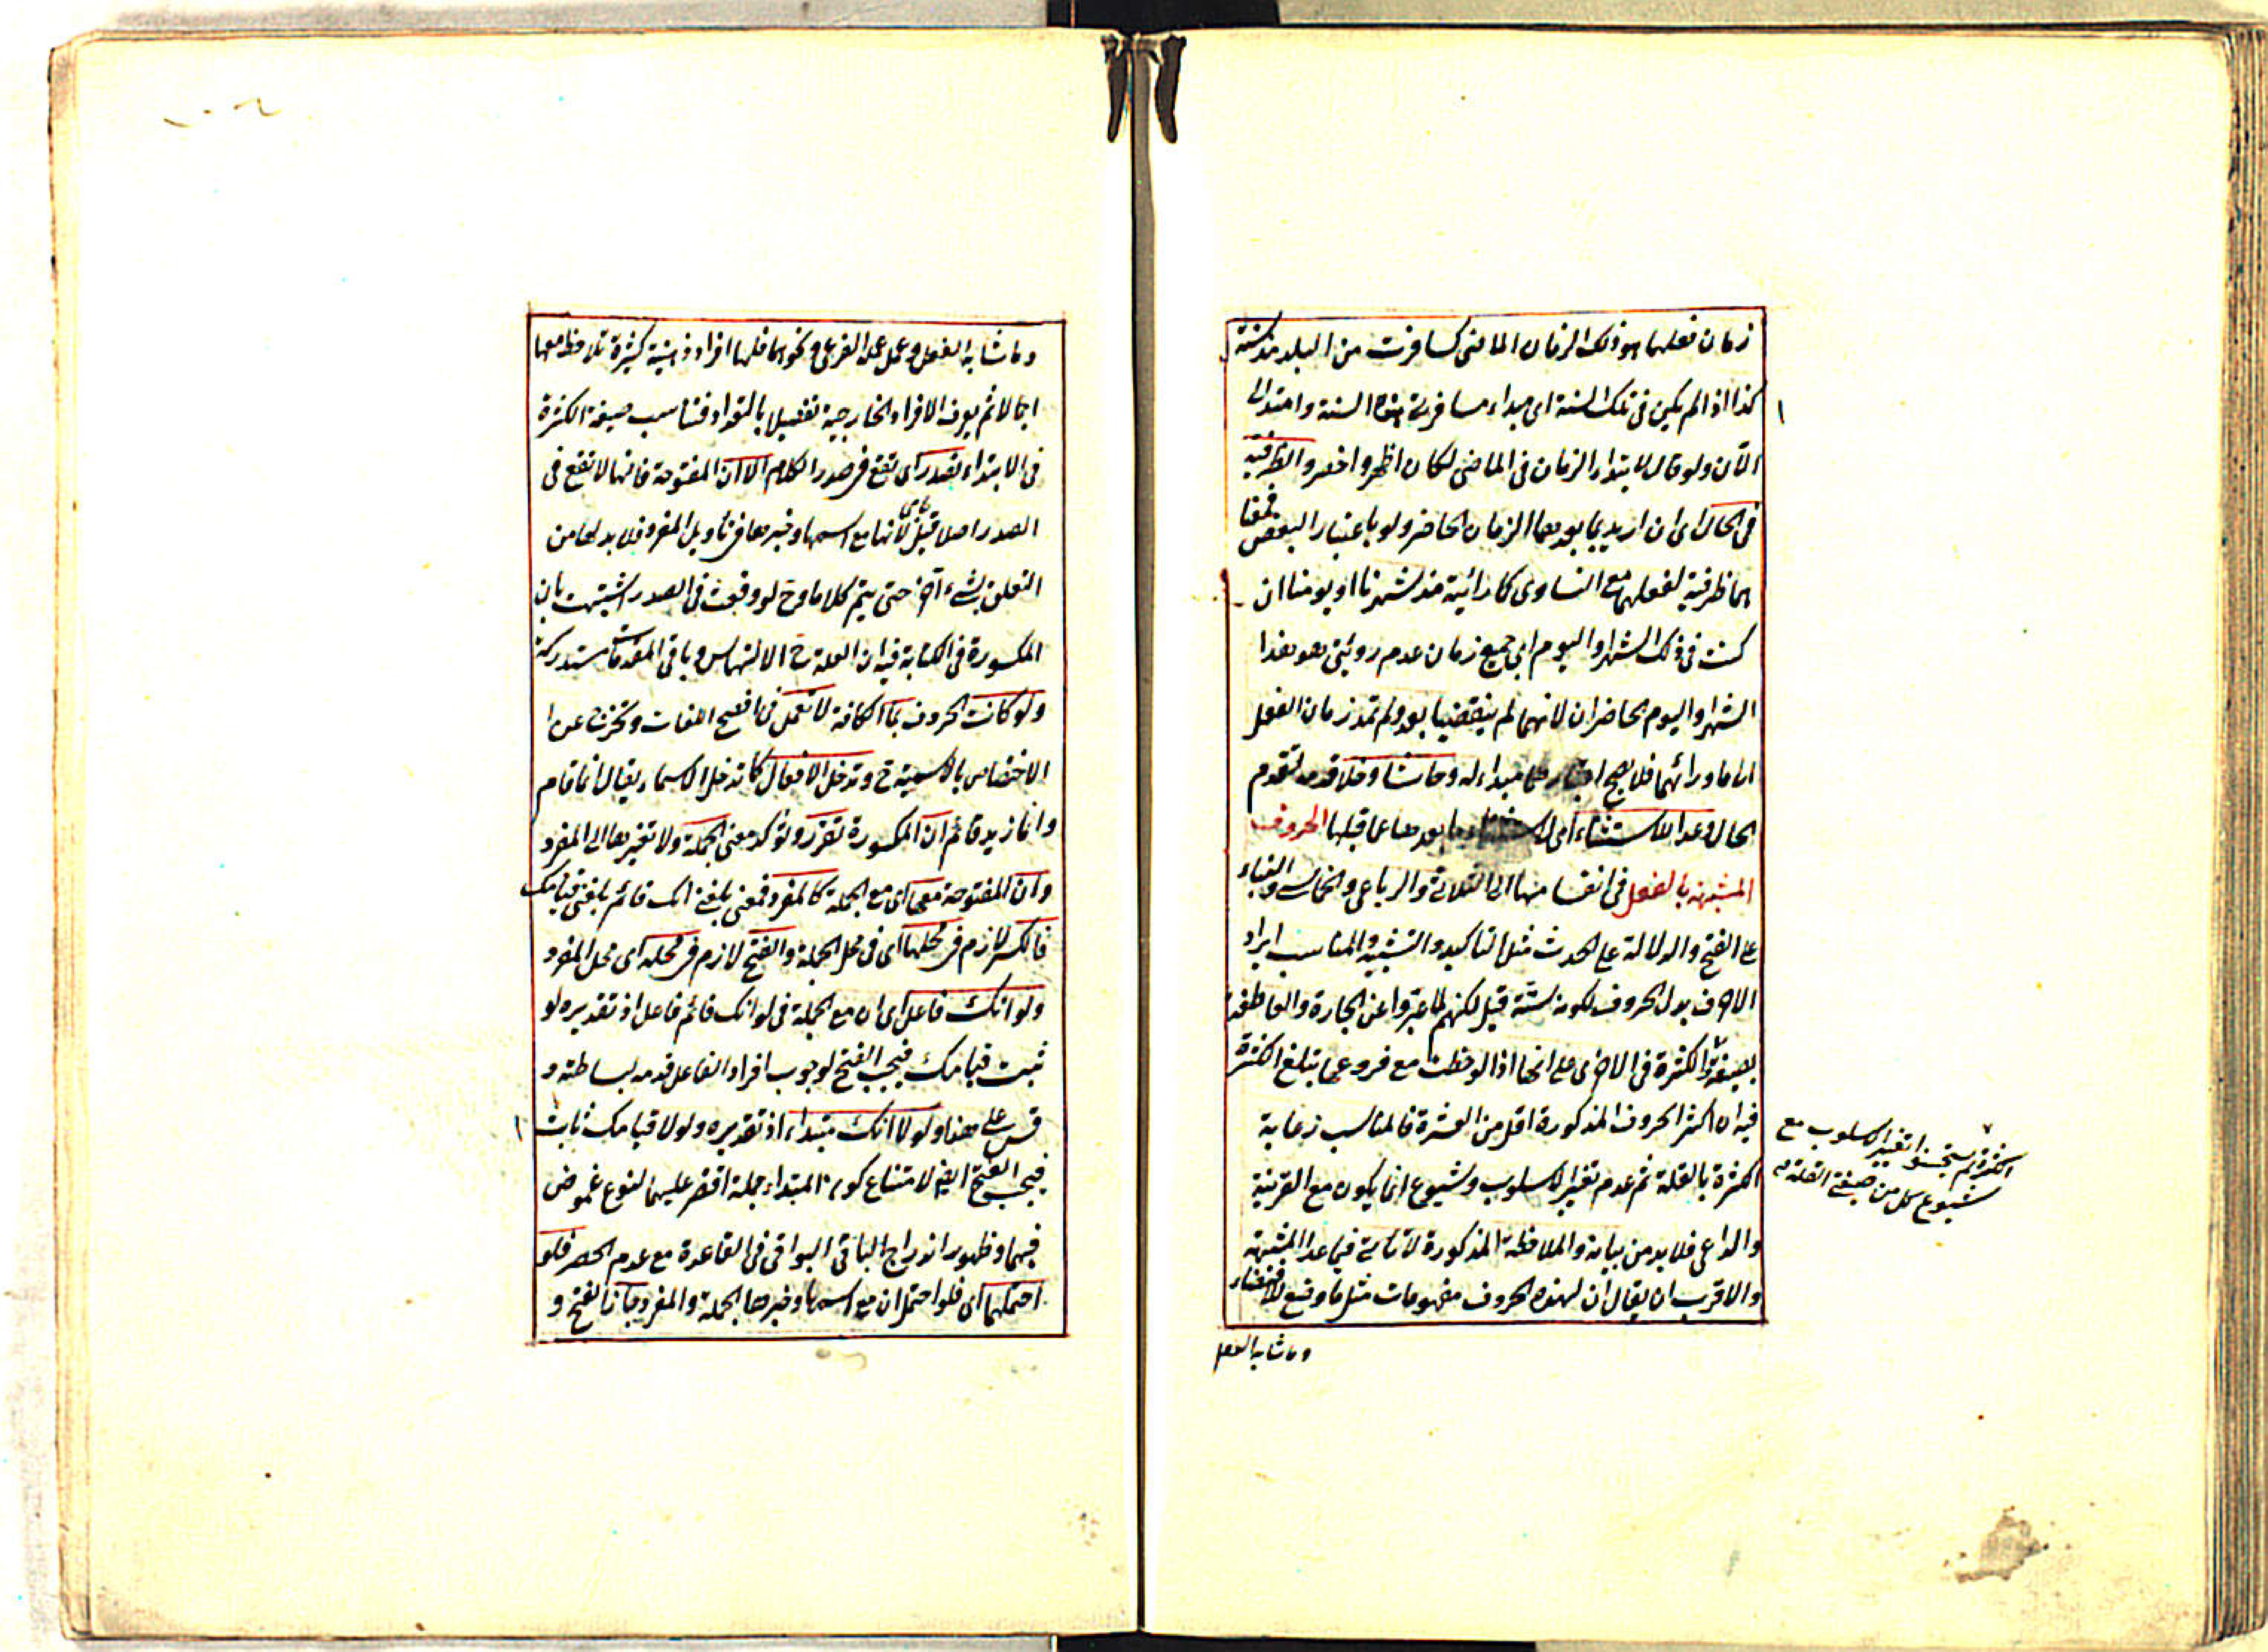 زمان فعلهما هو ذلك الزمان الماضى كسافرت من البلد مذ سنة
كذا اذا لم يكن فى تلك السنة اى مبداء مسافرتى هذه السنة وامتد الى
الآن ولو قال لابتداء الزمان فى الماضى لكان اظهر واخصر والظرفية
فى الحال اى ان اريد بما بعدهما الزمان الحاضر ولو باعتبار البعض فمعنا
هما ظرفية لفعلهما مع التساوى كما رأيته مذ شهرنا او يومنا ان
كنت فى ذلك الشهر او اليوم اى جميع زمان عدم رؤيتى هو هذا
الشهر او اليوم الحاضران لانهما لم ينقضيا بعد ولم تمد زمان الفعل
اما ما ورائهما فلا يصح اعتبارهما مبداء له وحاشا وخلا قد مر لتقدم
الحال وعدا للاستثناء اى لاستثناء ما بعدها عما قبلها الحروف
المشبهة بالفعل فى انقسامها الى الثلاثى والرباعى والخماسى والبناء
على الفتح والدلالة على الحدث مثل التاكيد والتشبيه والمناسب ايراد
الاحرف بدل الحروف لكونه ستة قيل لكنهم لما عبروا عن الجارة والعاطفة
بصيغة الكثرة فى الاخرى على انها اذا لوحظت مع فروعها بتلغ الكثرة
فيه ان اكثر الحروف المذكورة اقل من العشرة فالمناسب رعاية
الكثرة بالقلة ثم عدم تغير الاسلوب وشيوع انما يكون مع القرينة
والداعى فلا بد من بيانه والملاحظة المذكورة لا تاتى فيما عدا المشبهة
والاقرب ان يقال ان لهذه الحروف مفهومات مثل ما وضع للافضاء
وما شابه الفعل
الكثرة لم يستحسنوا تغير الاسلوب مع
شيوع كل من صيغتى القلة
وما شابه الفعل وعمل عمله الفرعى ونحوهما فلها افراد ذهنية كثيرة تلاحظ معها
اجمالا ثم يعرف الافراد الخارجية تفصيلا بالتعداد فتناسب صيغة الكثرة
فى الابتداء تصدر اى تقع فى صدر الكلام الا ان المفتوحة فانها لا تقع فى
الصدر اصلا قيل لانها مع اسمها وخبرها فى تأويل المفرد فلا بد لها من
التعلق بشىء آخر حتى يتم كلاما وح لو وقعت فى الصدر اشتبهت بان
المكسورة فى الكتابة فيه ان العلة ح الالتباس وباقى المقدمات مستدركة
ولو كانت الحروف بما الكافة لا تعمل فى افصح اللغات وتخرج عن
الاختصاص بالاسمية ح وتدخل الافعال كما تدخل الاسماء يقال انما قام
وانما زيد قائم ان المكسورة تقرر وتؤكد معنى الجملة ولا تغيرها الى المفرد
وان المفتوحة معها اى مع الجملة كالمفرد فمعنى بلغنى انك قائم بلغنى قيامك
فالكسر لازم فى محلها اى فى محل الجملة والفتح لازم فى محله اى محل المفرد
ولو انك فاعل اى ان مع الجملة فى لو انك قائم فاعل اذ تقديره لو
ثبت قيامك فيجب الفتح لوجوب افراد الفاعل قدمه لبساطته و
قس على هذا ولولا انك مبتداء اذ تقديره ولولا قيامك ثابت
فيجب الفتح ايضا لامتناع كون المبتداء جملة اقتصر عليهما لنوع غموض
فيهما وظهور اندراج الباقى البواقى فى القاعدة مع عدم الحصر فلو
احتملهما اى فلو احتمل ان مع اسمها وخبرها الجملة والمفرد جاز الفتح و